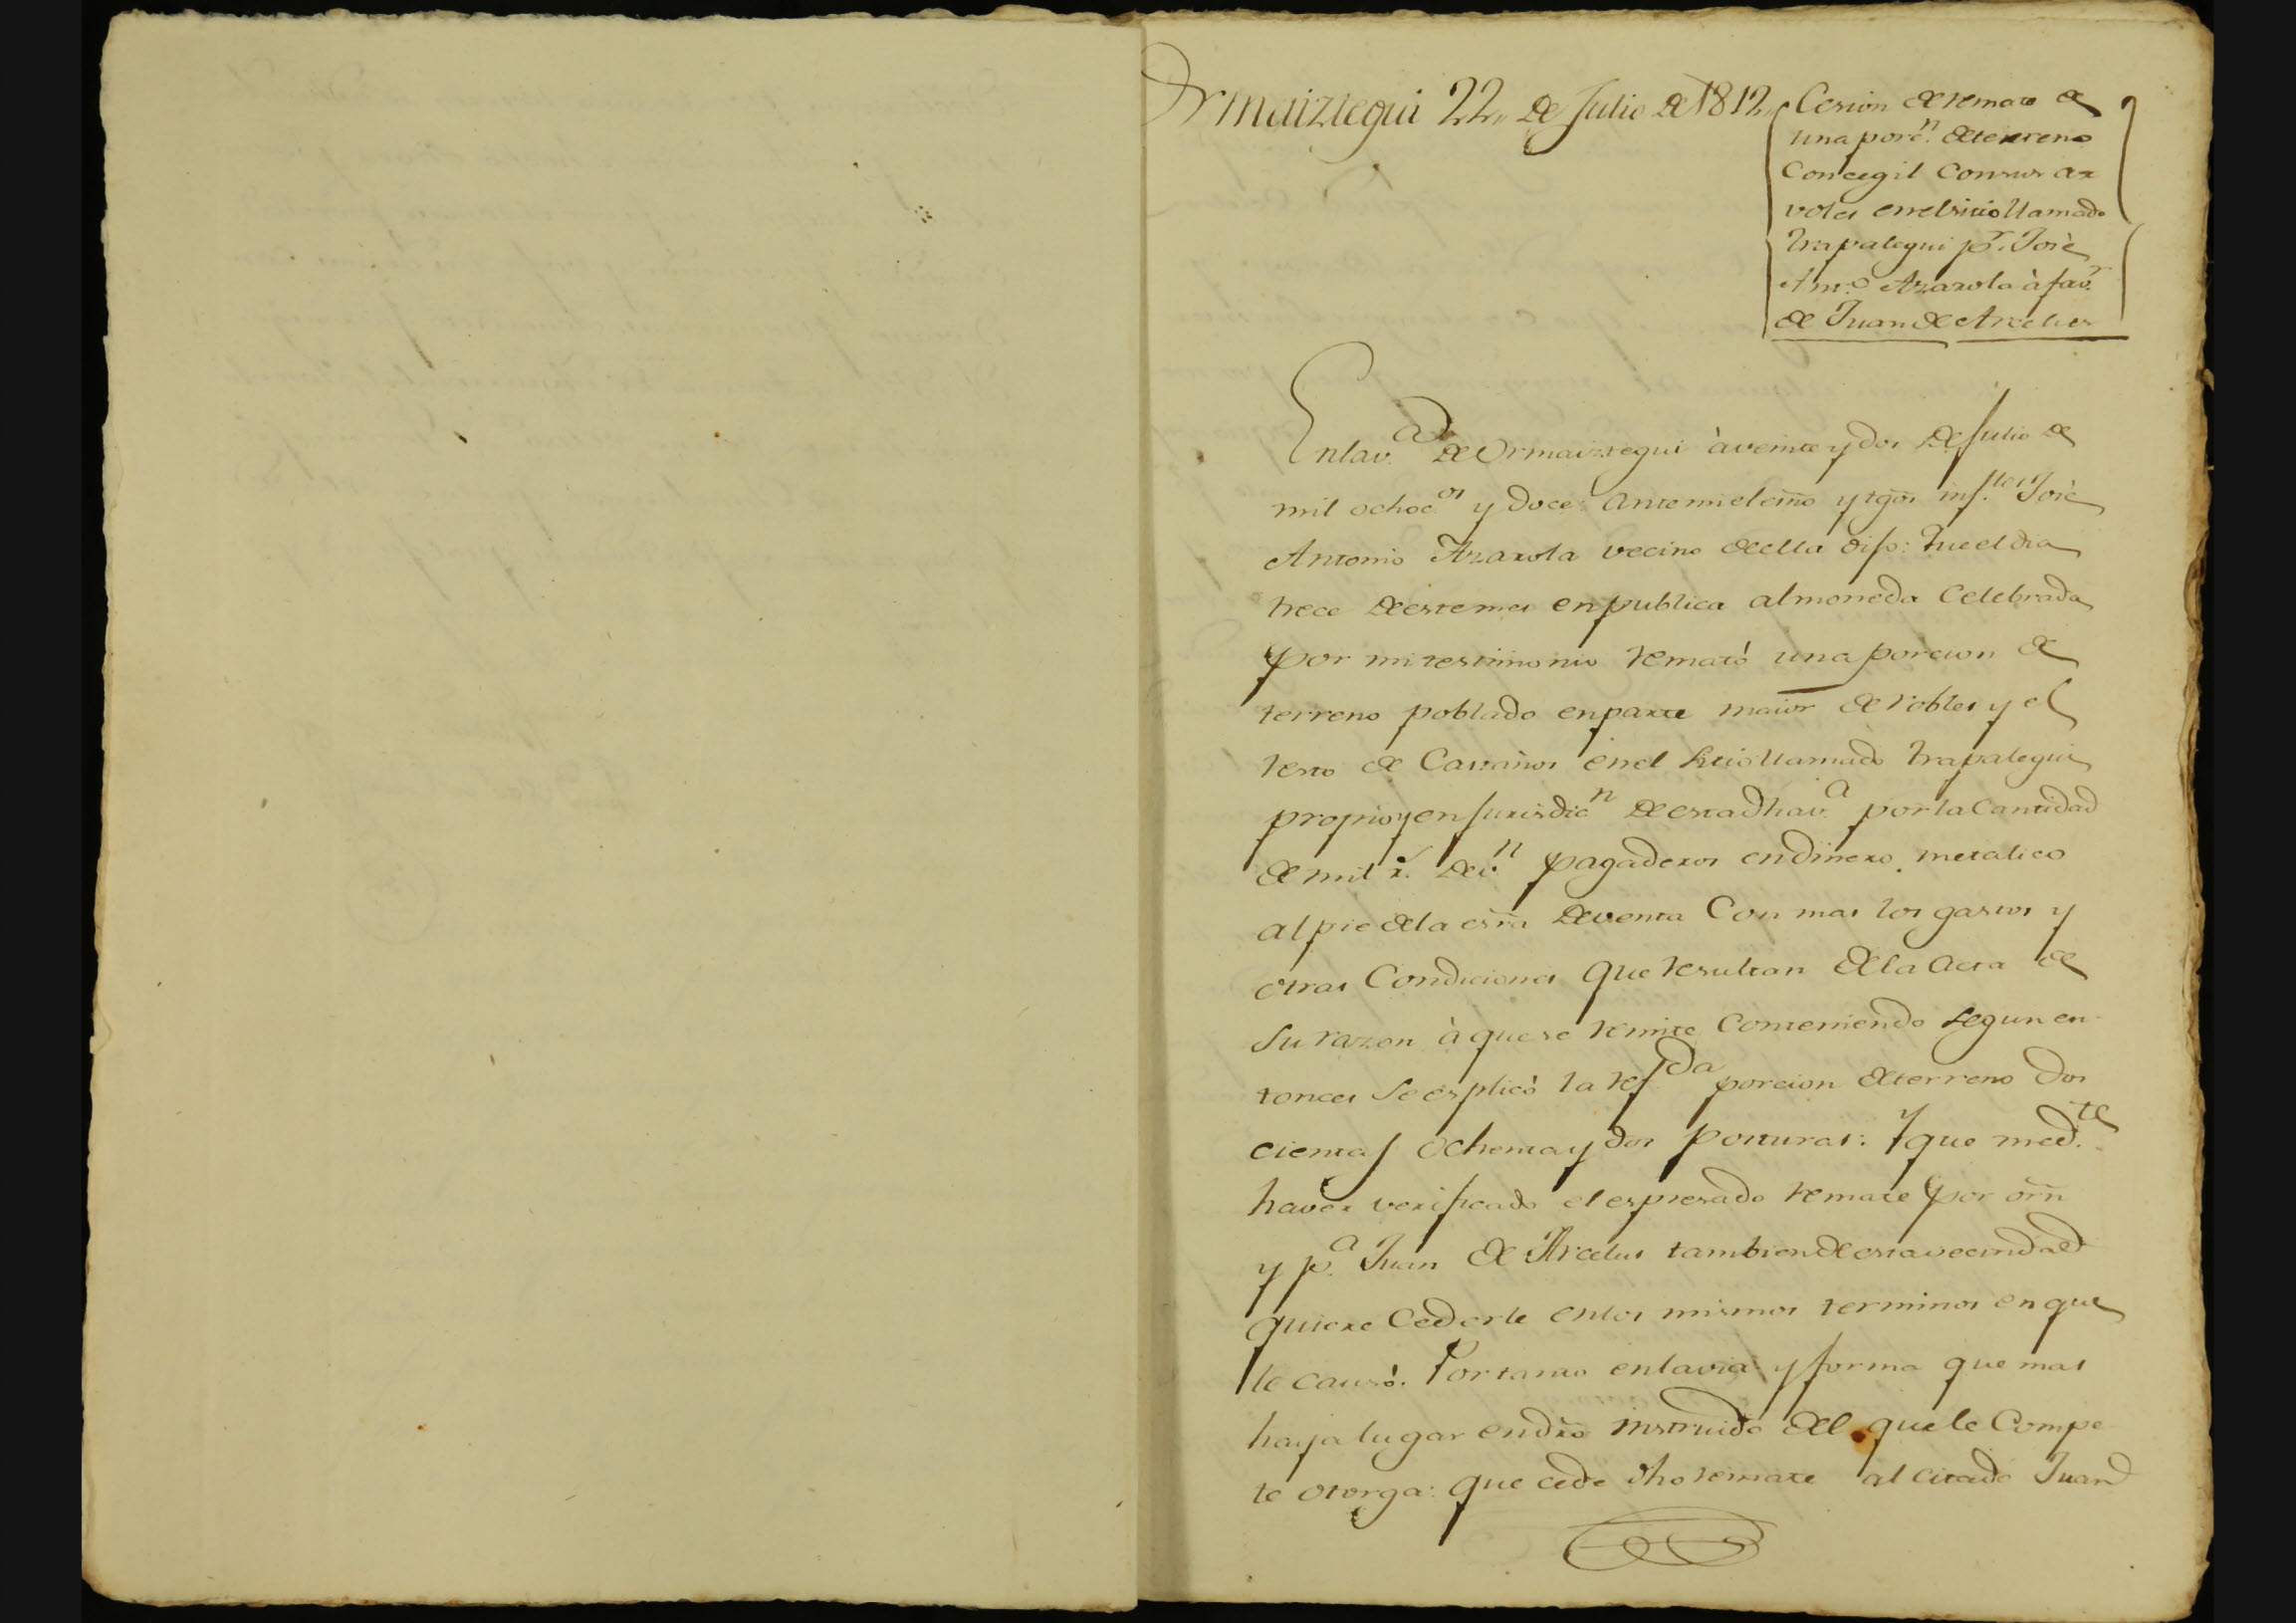 Ormaiztegui 22,, de Julio de 1812,,
Cesion de remate de
una porc.n de terreno
Concegil con sus ar
voles en el sitio llamado
Trapategui p.r José
Ant.o Azarola à fav.r
de Juan de Arcelus
En la v.a de Ormaiztegui à veinte y dos de Julio de
mil ochoc.os y doce: ante mi el esño y tgõs inf.tos José
Antonio Azarola vecino de ella dijo: Que el dia
trece de este mes en publica almoneda celebrada
por mi testimonio remató una porcion de
terreno poblado en parte maior de robles y el
resto de Castaños en el sitio llamado Trapategui
propio y en jurisdic.n de esta dha v.a por la cantidad
de mil r.s de v.n pagaderos en dinero metalico
al pie de la esrã de venta con mas los gastos y
otras condiciones que resultan de la acta de
su razon à que se remite conteniendo segun en-
tonces se esplicò la ref.da porcion de terreno dos
cientas ochenta y dos posturas: Y que med.te
haver verificado el espresado remate por orñ
y p.a Juan de Arcelus tambien de esta vecindad
quiere cederle en los mismos terminos en que
le causó. Por tanto en la via y forma que mas
haya lugar en dro instruido del que le compe
te otorga: que cede dho remate al citado Juan